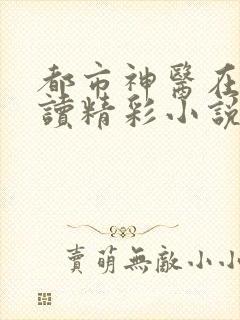 都市神醫在
讀精彩小說
賣萌無敵小小